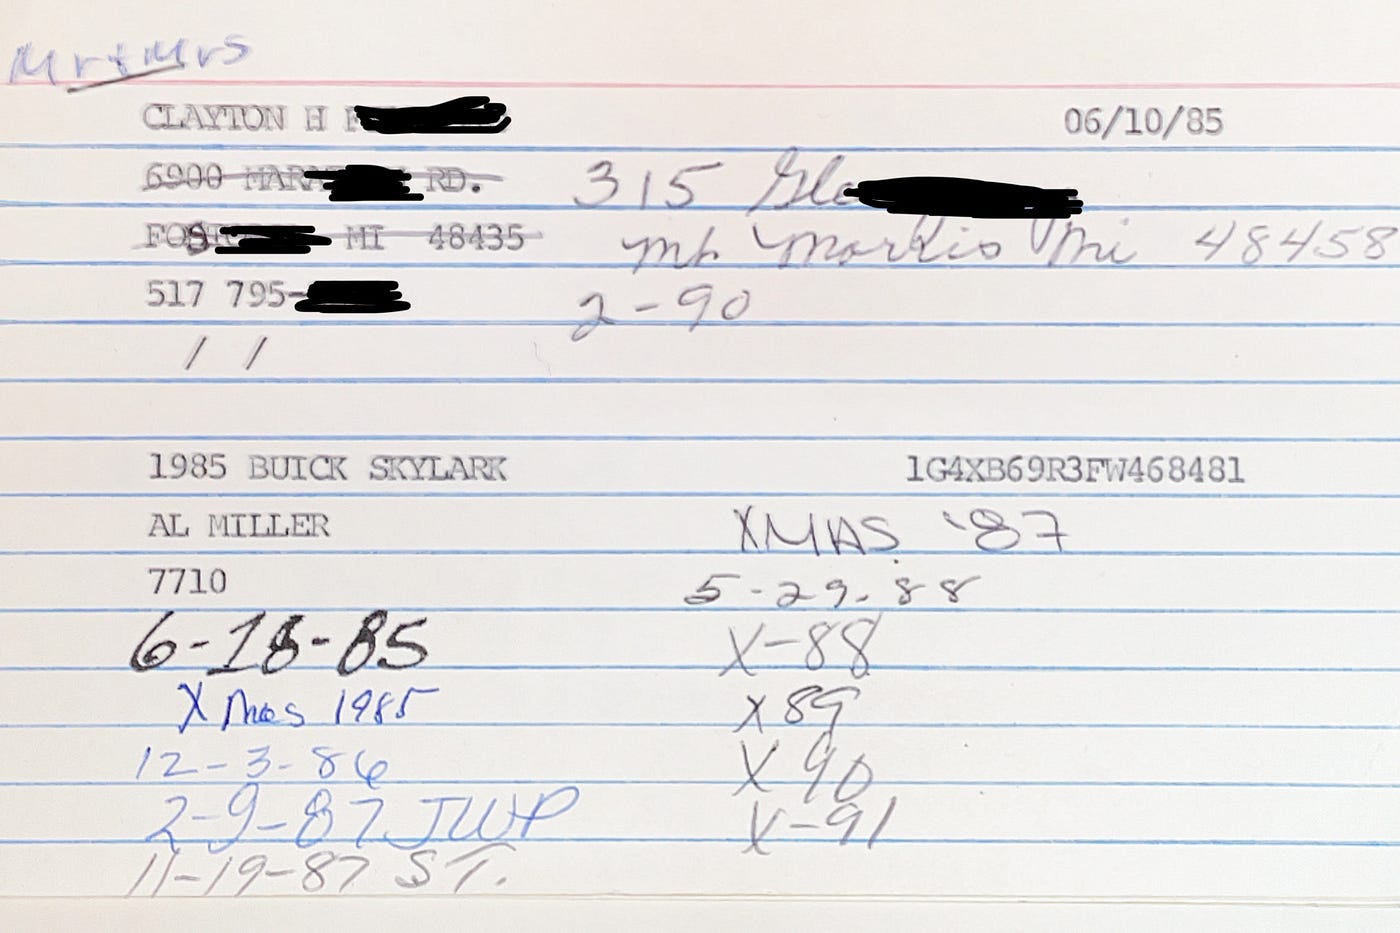 Mr + Mrs
CLAYTON H 06/10/85
6900 RD. 315
MI 48435 Mt Morris Mi 48458
517 795- 2-90
/ /
1985 BUICK SKYLARK 1G4XB69R3FW468481
AL MILLER XMAS '87
7710 5-29-88
6-18-85 X-88
X mas 1985 X 89
12-3-86 X 90
2-9-87 JWP X-91
11-19-87 ST.